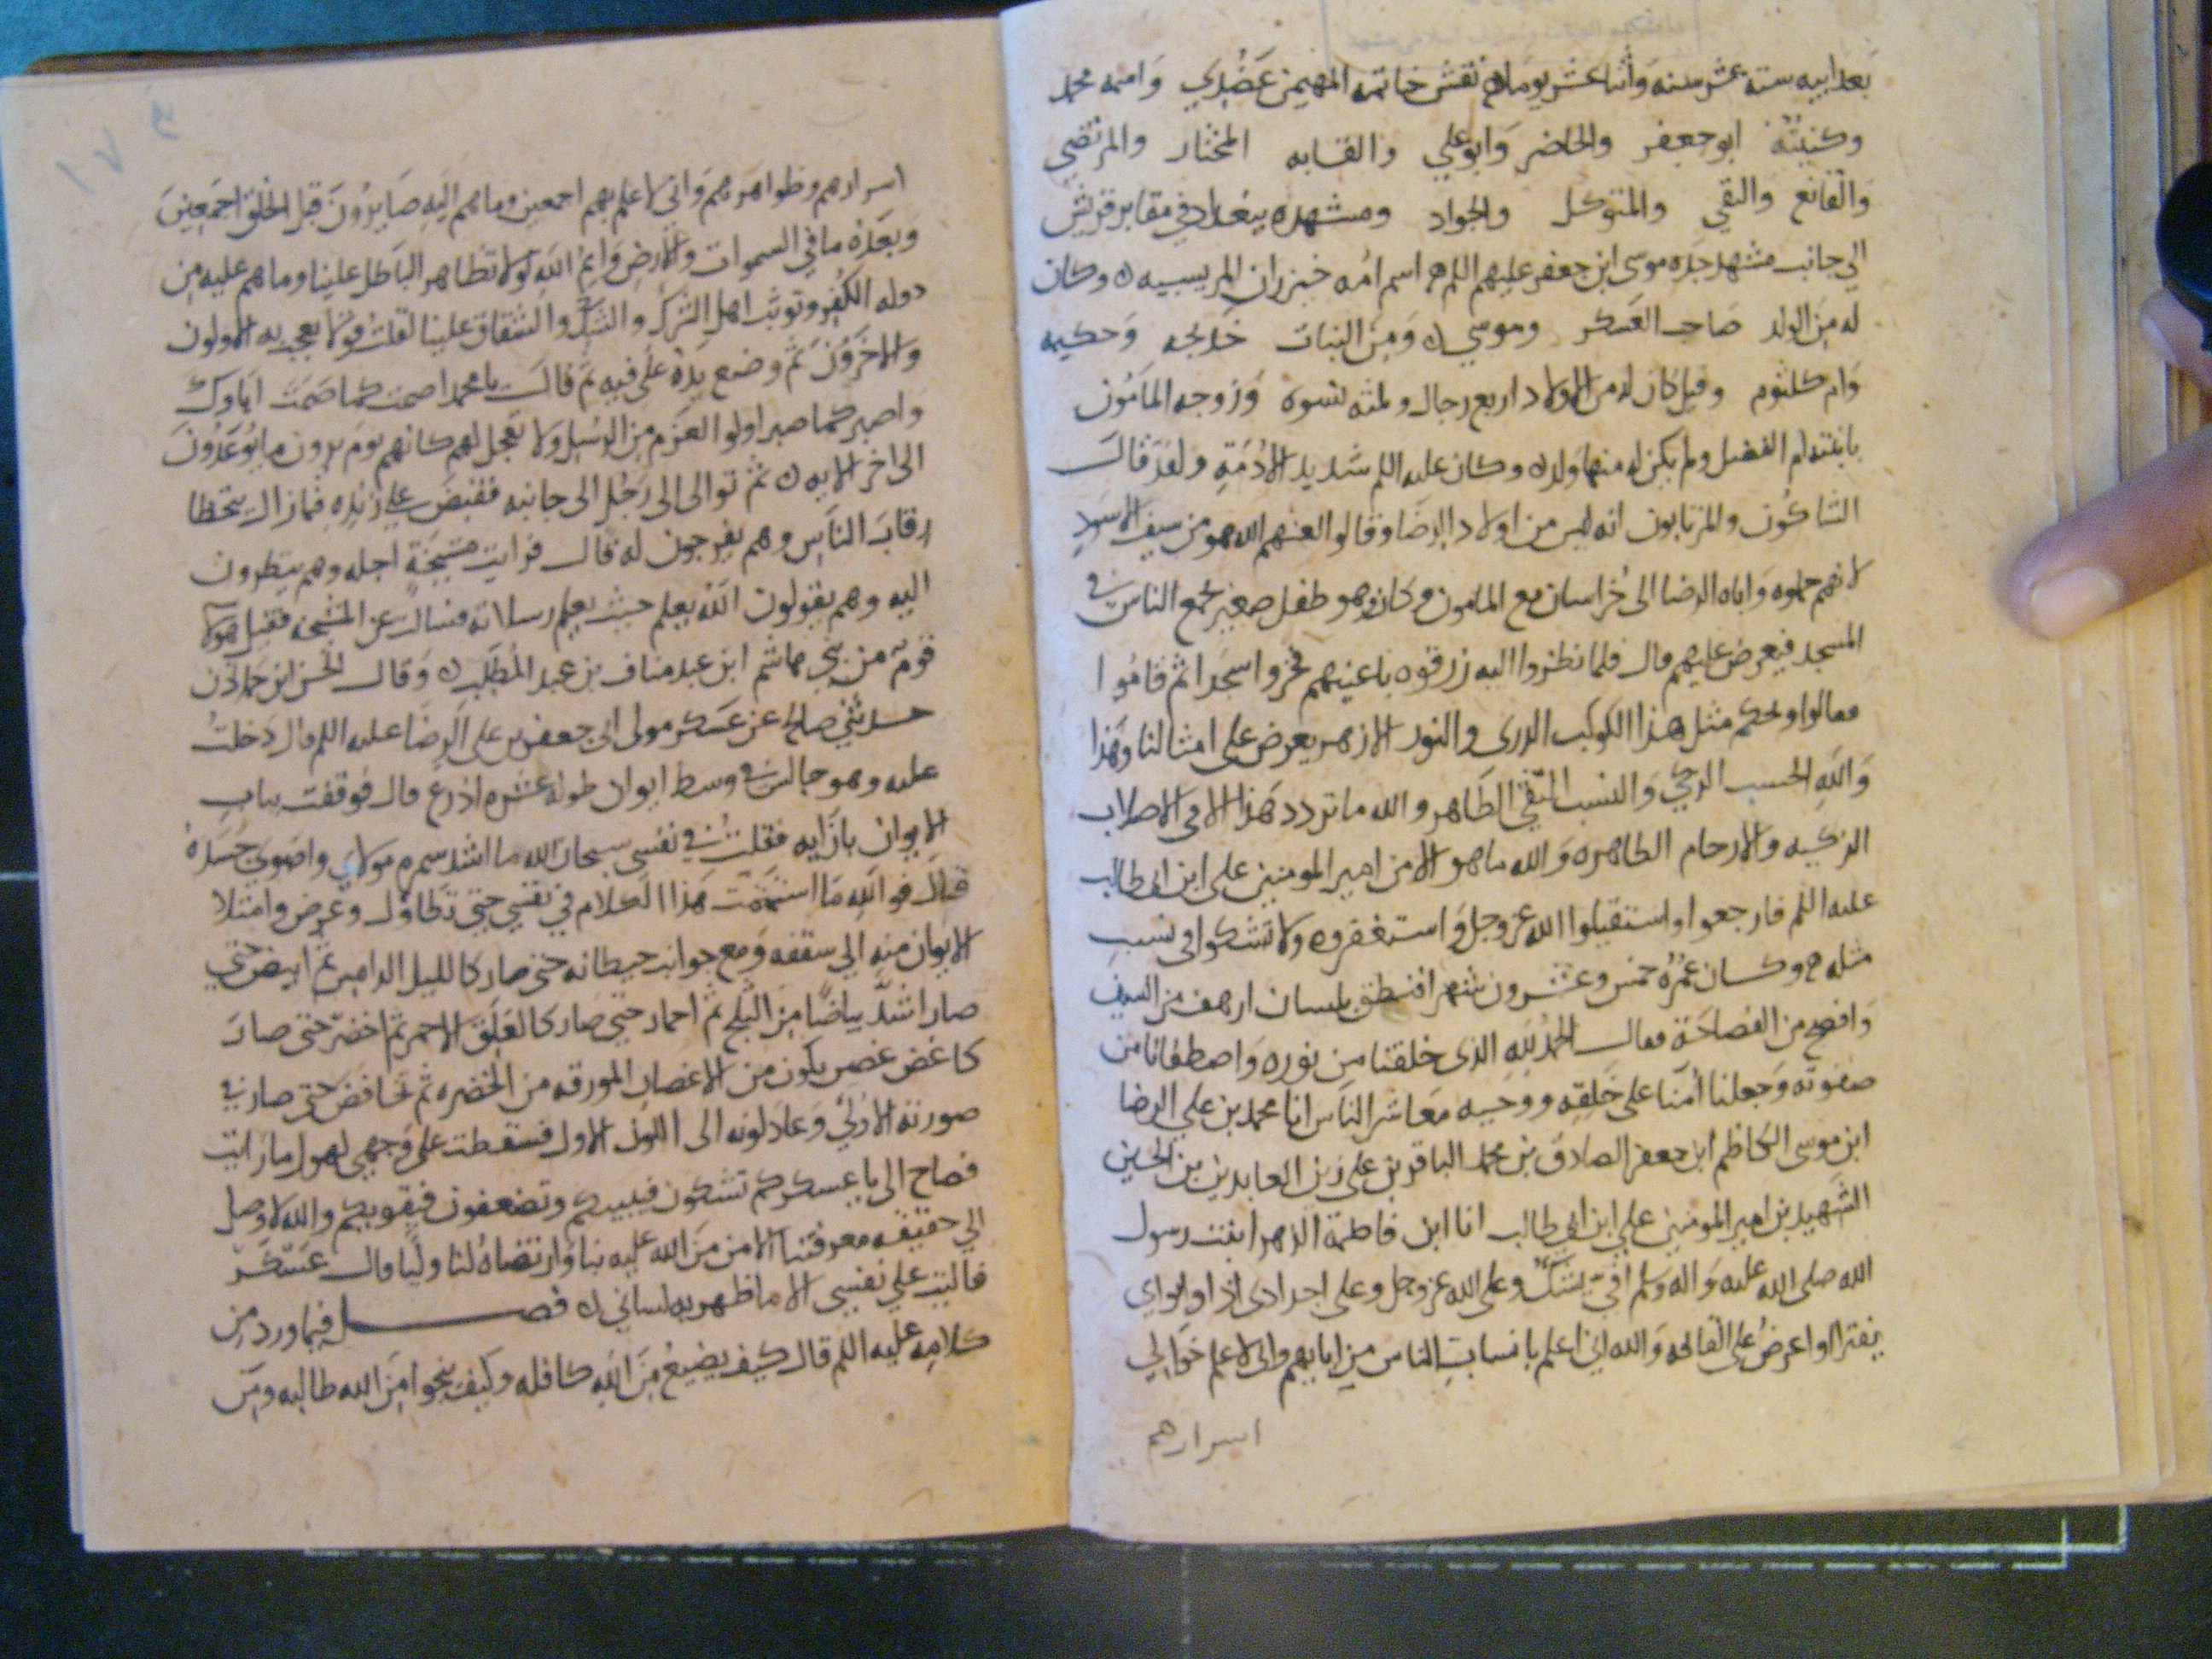 بعد ابيه ستة عشر سنه وَاثنا عشر يوما نقش خاتمه المهيمن عَضُدِي وَاسمه محمد
وكنيتُهُ ابو جعفر والخاضر وَابو علي والقابه المختار والمرتضي
وَالقانع والتقي والمتوكل والجواد ومشهده ببغداد في مقابر قريش
الي جانب مشهد جده موسى ابن جعفر عليهم اللم اسم امه خيزران المريسيه وكان
له مِنَ الولد صَاحب العَسكر وموسي وَمِنَ البنات خديجه وَحكيمه
وَام كلثوم وقيل كان له من الاولاد اربع رجال وثلثه نسوه وَزوجه المأمون
بابنته ام الفضل ولم يكن له منها ولد وكان عليه اللم شديد الادُمَةِ ولقد قَالَ
الشاكُون والمرتابون انه ليس من اولاد الرضَا وقالوا لعنهم الله هو من سيف الاسود
لانهم حملوه وَاباه الرضا الى خُراسان مع المامون وكان وهو طفل صغير بمجمع الناس في
المسجد فيعرض عليهم قال فلما نظروا اليه زرقوه باعينهم فخروا سجَدا ثم قامُوا
فقالوا ويحكم مثل هذا الكوكب الدرى والنور الازهر يعرض على امثالنا وَهذا
وَاللهِ الحسب الزكي وَالنسب النّقي الطَاهر والله ما تردد هَذا الا في الاصلاب
الزكيه والارحام الطاهره وَالله ما هو الا من امير المومنين على ابن ابى طالب
عليه اللم فارجعوا واستقيلوا الله عز وجل وَاستغفروه ولا تشكوا في نسب
مثله وكان عُمرُهُ خمس وعشرون شهرا فنطق بلسان ارهف من السيف
وَافصح من الفصاحَة فقال الحَمدُ لله الذى خلقنا من نوره وَاصطفانا من
صفوته وَجعلنا أمنَا على خَلقِه ووحيه مَعَاشر النَاس انا محمد بن علي الرضا
ابن موسى الكاظم ابن جعفر الصَادق بن محمد الباقر بن علي زين العابدين بن الحسين
الشهيد بن امير المومنين علي ابن ابي طالب انا ابن فاطمة الزهرا بنت رسول
الله صلى الله عليه وَاله وَسلم افي يُشَكُّ وعلى الله عز وجل وعلى اجدادى وابواي
يفترا واعرضُ على القافه وَالله انى اعلم بانساب الناس مِن ابايهم وانى لا علم خوَالي
اسرارهم
اسرارهم وظواهرهم وَاني لاعلم بهم اجمعين وما هم اليه صَايرُونَ قبل الخلق اجَمَعِينَ
وبعدهُ ما في السموات والارض وَايم الله لَولا تظاهر الباطل علينا وما هم عليه من
دوله الكُفر وتوثب اهل الشرك والشك والشقاق علينا لقلتُ قولا يعجب به الاولون
والاخرُونَ ثم وضع يدَهُ على فيه ثمّ قالَ يا محمد اصمت كما صَمَتَ اباوك
واصبر كما صبر اولوا العزم من الرسُل ولا تعجل لهم كانهم يومَ يرون ما يُوعَدُونَ
الى اخر الايه ثم توالى الى رَجُل الى جانبه فقبضَ على زنده فما زال يتخطا
رقابَ الناَسِ وهم يفرجون له قال فرايت مشيخَة اجله وهم ينظرون
اليه وهم يقولون اللهُ يعلم حيث يجعل رسالاته فسالت عن المشيخه فقيل هولا
قومٌ من بني هاشم ابن عبد مناف بن عبد المُطلّب وَقال الحسن ابن حمدان
حدثني صالح عن عَسكر مولى ابى جعفر بن على الرضا عليه اللم قال دَخلتُ
عليه وهو جالس في وسط ايوان طوله عَشره اذرع قال فوقفت بباب
الايوان بازايه فقلتُ في نفسي سبحان الله ما اشد سمره مولاي واضوى جَسَدهُ
قال فوالله مَا استتممت هَذا الكلام في نفسي حتي تطَاوَل وعرض وامتلا
الايوان منه الي سقفه وَمع جوانب حيطانه حتى صار كالليل الدامس ثم ابيض حتي
صار اشدَّ بياضاً مِن الثلج ثم احمار حتي صار كالعَلَق الاحمر ثم اخضر حتى صارَ
كاغض غصن يكون من الاغصَان المورقه من الخضره ثم تخافض حتى صار في
صورته الاوَلى وَعاد لونه الى اللون الاول فسقطت على وجهى لهول ما رَايت
فصاح الى يا عسكر كم تشكون فننبيكم وتضعفون فيقويكم والله لا وصل
الي حقيقه معرفتنا الا من مَنَ الله عليه بنا وَارتضاهُ لنا ولياً قال عسَكَر
فاليت علي نفسي الا ما ظهر به لساني فصل فيما ورد من
كلامِه عليه اللم قال كيف يضيعُ مَنَ اللهِ كافله وكيف ينجوا مَنَ الله طالبه ومَن